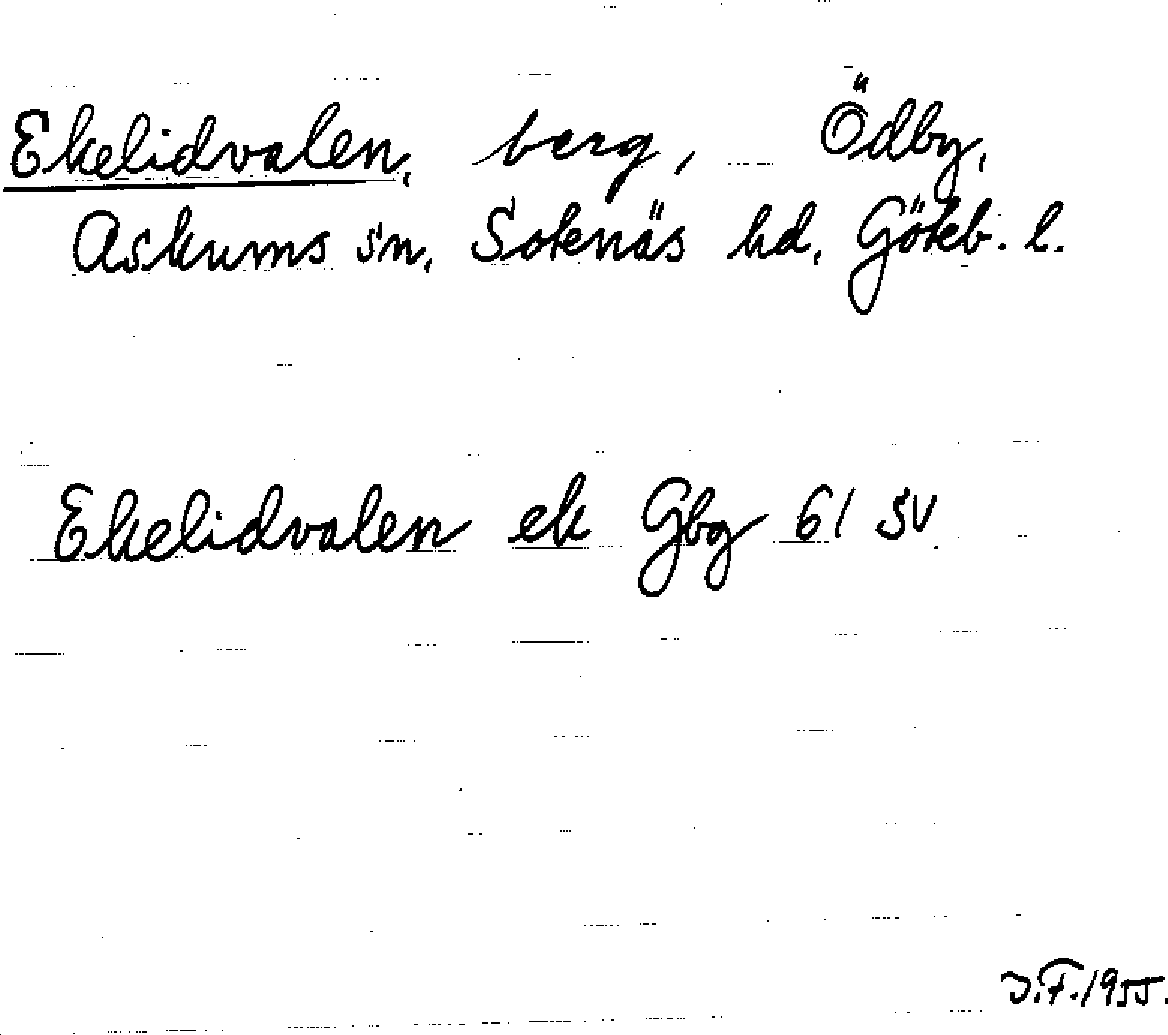 Ekelidvalen, berg, Ödby,
Askums sn, Sotenäs hd, Göteb. l.
Ekelidvalen ek Gbg 61 SV
J.F. 1955.